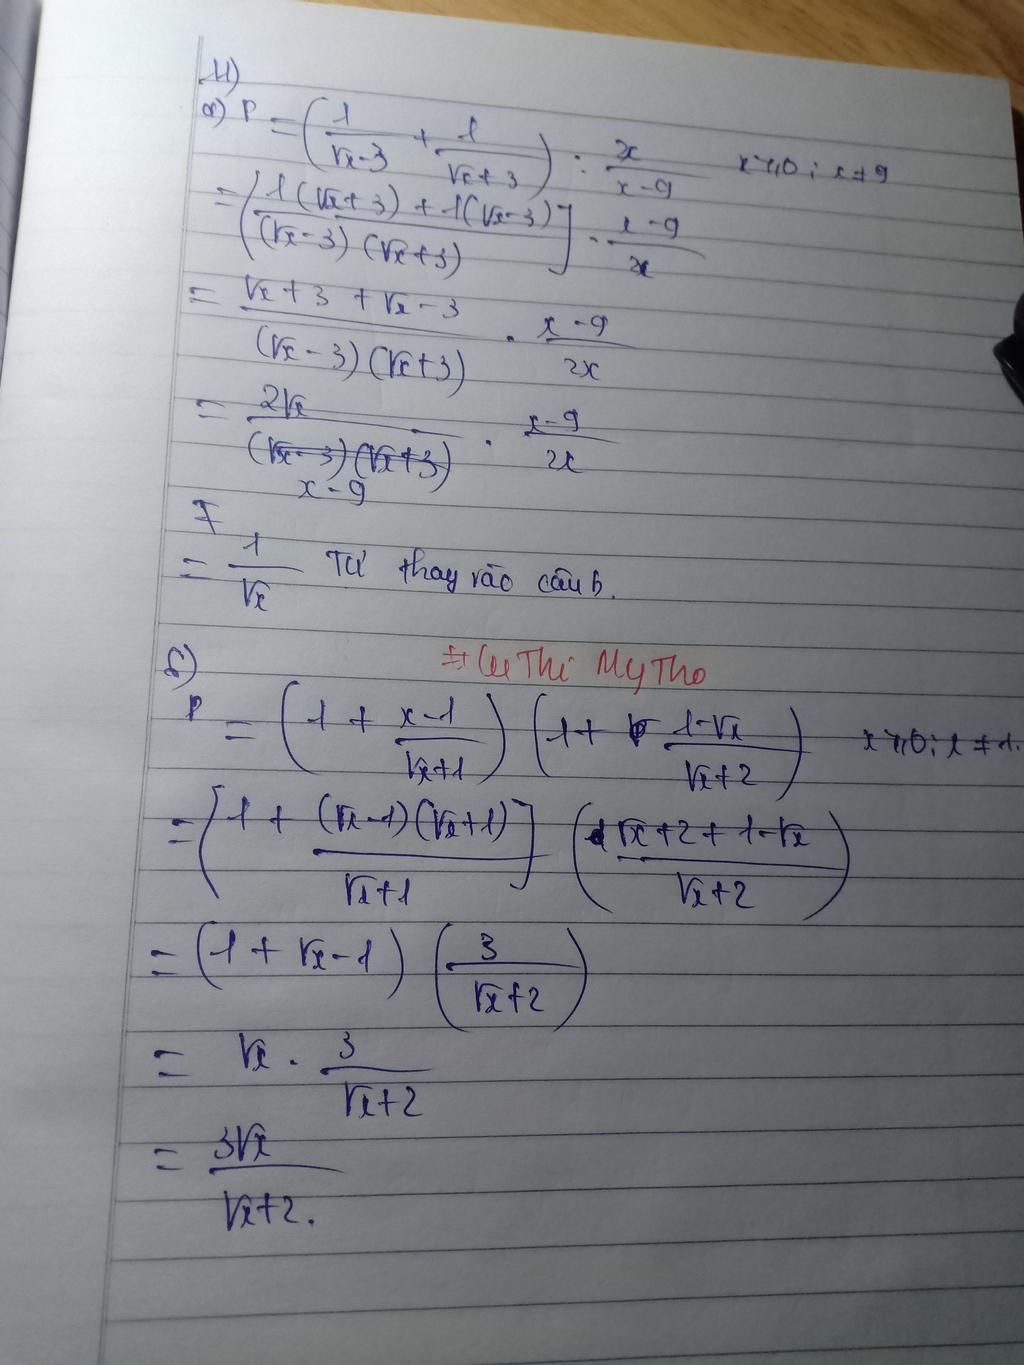 11)
a) P = (1/(√x-3) + 1/(√x+3)) : x/(x-9) x≥0; x≠9
= [(1(√x+3) + 1(√x-3))/((√x-3)(√x+3))] . (x-9)/x
= (√x+3+√x-3)/((√x-3)(√x+3)) . (x-9)/2x
= 2√x/((√x-3)(√x+3)) . (x-9)/2x
x-9
= 1/√x Tự thay vào câu b.
b)
P = (1 + (x-1)/(√x+1)) (1 + (1-√x)/(√x+2)) x≥0; x≠1.
= [1 + ((√x-1)(√x+1))/(√x+1)] ((√x+2+1-√x)/(√x+2))
= (1+√x-1) (3/(√x+2))
= √x . 3/(√x+2)
= 3√x/(√x+2).